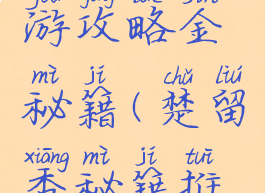 游攻略金
mì jí chǔ liú
秘籍(楚留
xiāng mì jí tuī
香秘籍推